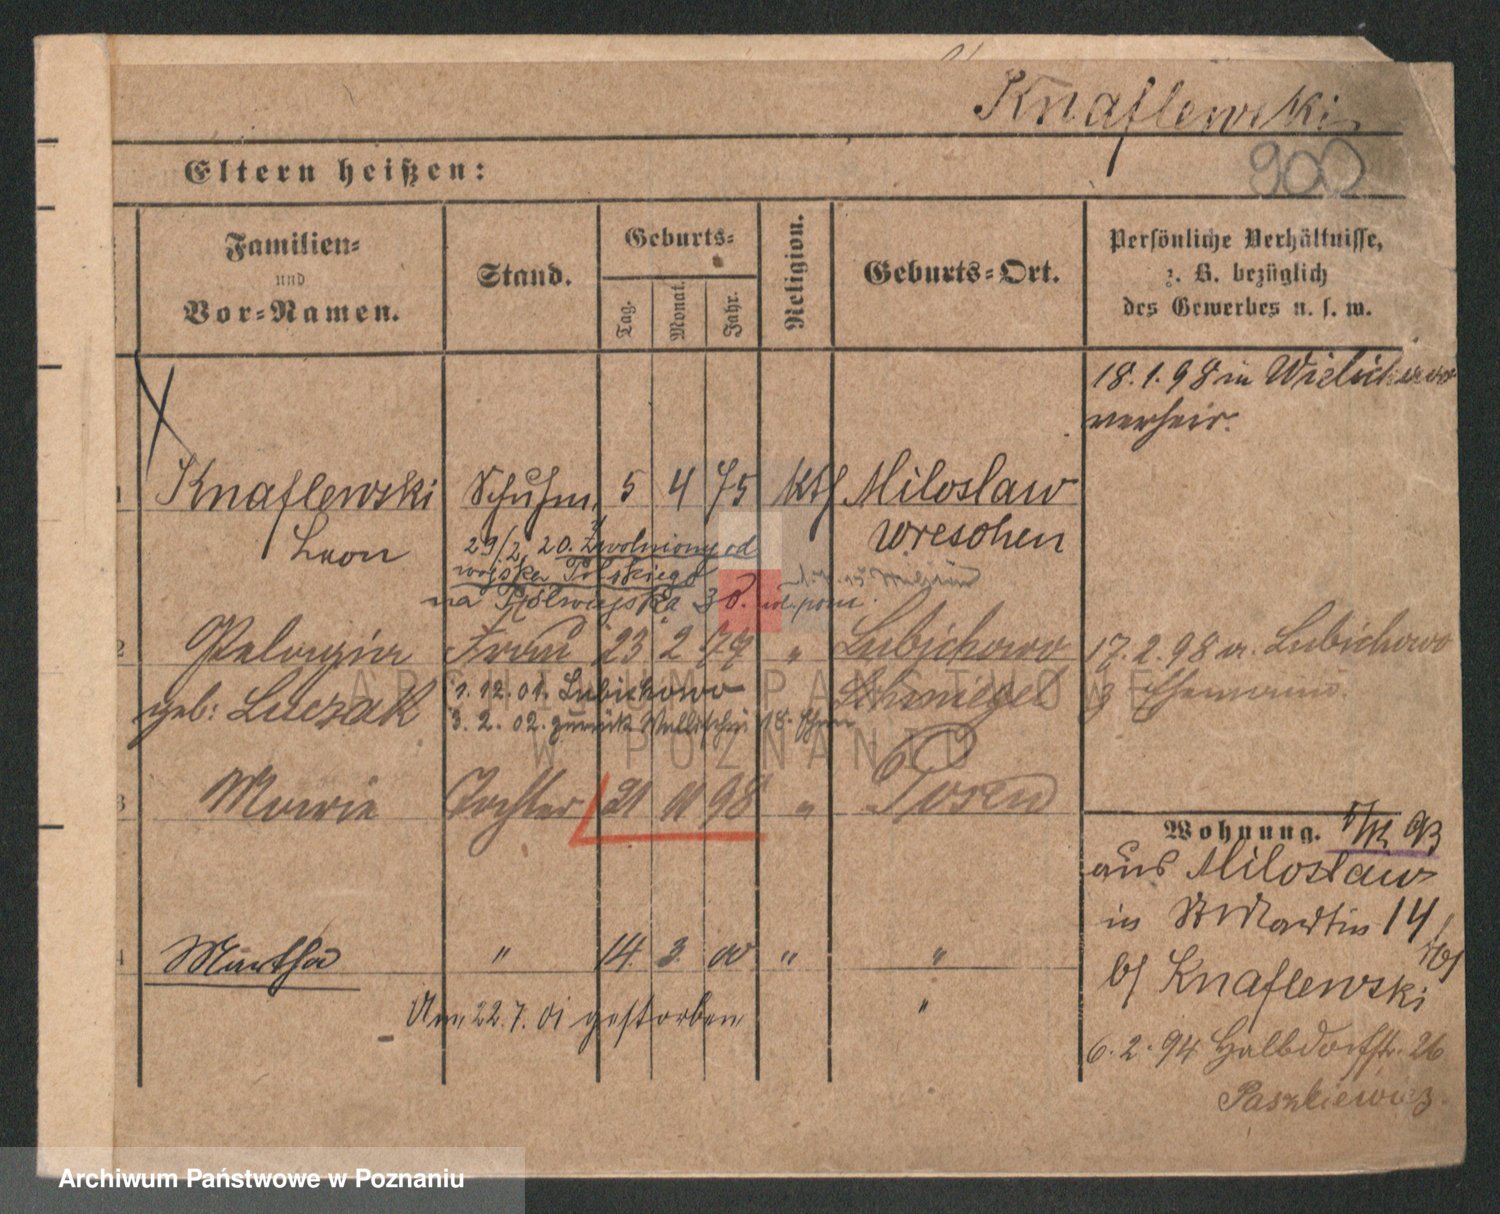 Knaflewski
900
Eltern heißen:
Familien- und Vor-Namen.
Stand.
Geburts-
Tag.
Monat.
Jahr.
Religion.
Geburts-Ort.
Persönliche Verhältnisse,
z. B. bezüglich
des Gewerbes u. s. w.
18.1.98 in Wielichowo
verheir.
1 Knaflewski Schuhm. 5 4 75 kth Miloslaw
Leon Wreschen
29/2 20. Zwolniony od
wojska Polskiego
na
2 Pelagia Frau 23 2 79 " Lubichowo 17.2.98 a. Lubichowo
geb: Luczak 1.12.01. Lubichowo Schmiegel z Ehemann.
3.2.02. zurück Wallischei 18.
3 Marie Tochter 21 11 98 " Posen
Wohnung. 93
aus Miloslaw
in St Martin 14
b/ Knaflewski
4 Martha " 14. 3. 00 " "
Am 22.7.01 gestorben "
6.2.94 Halbdorfstr. 26
Paszkiewicz
ARCHIWUM PAŃSTWOWE
W POZNANIU
Archiwum Państwowe w Poznaniu